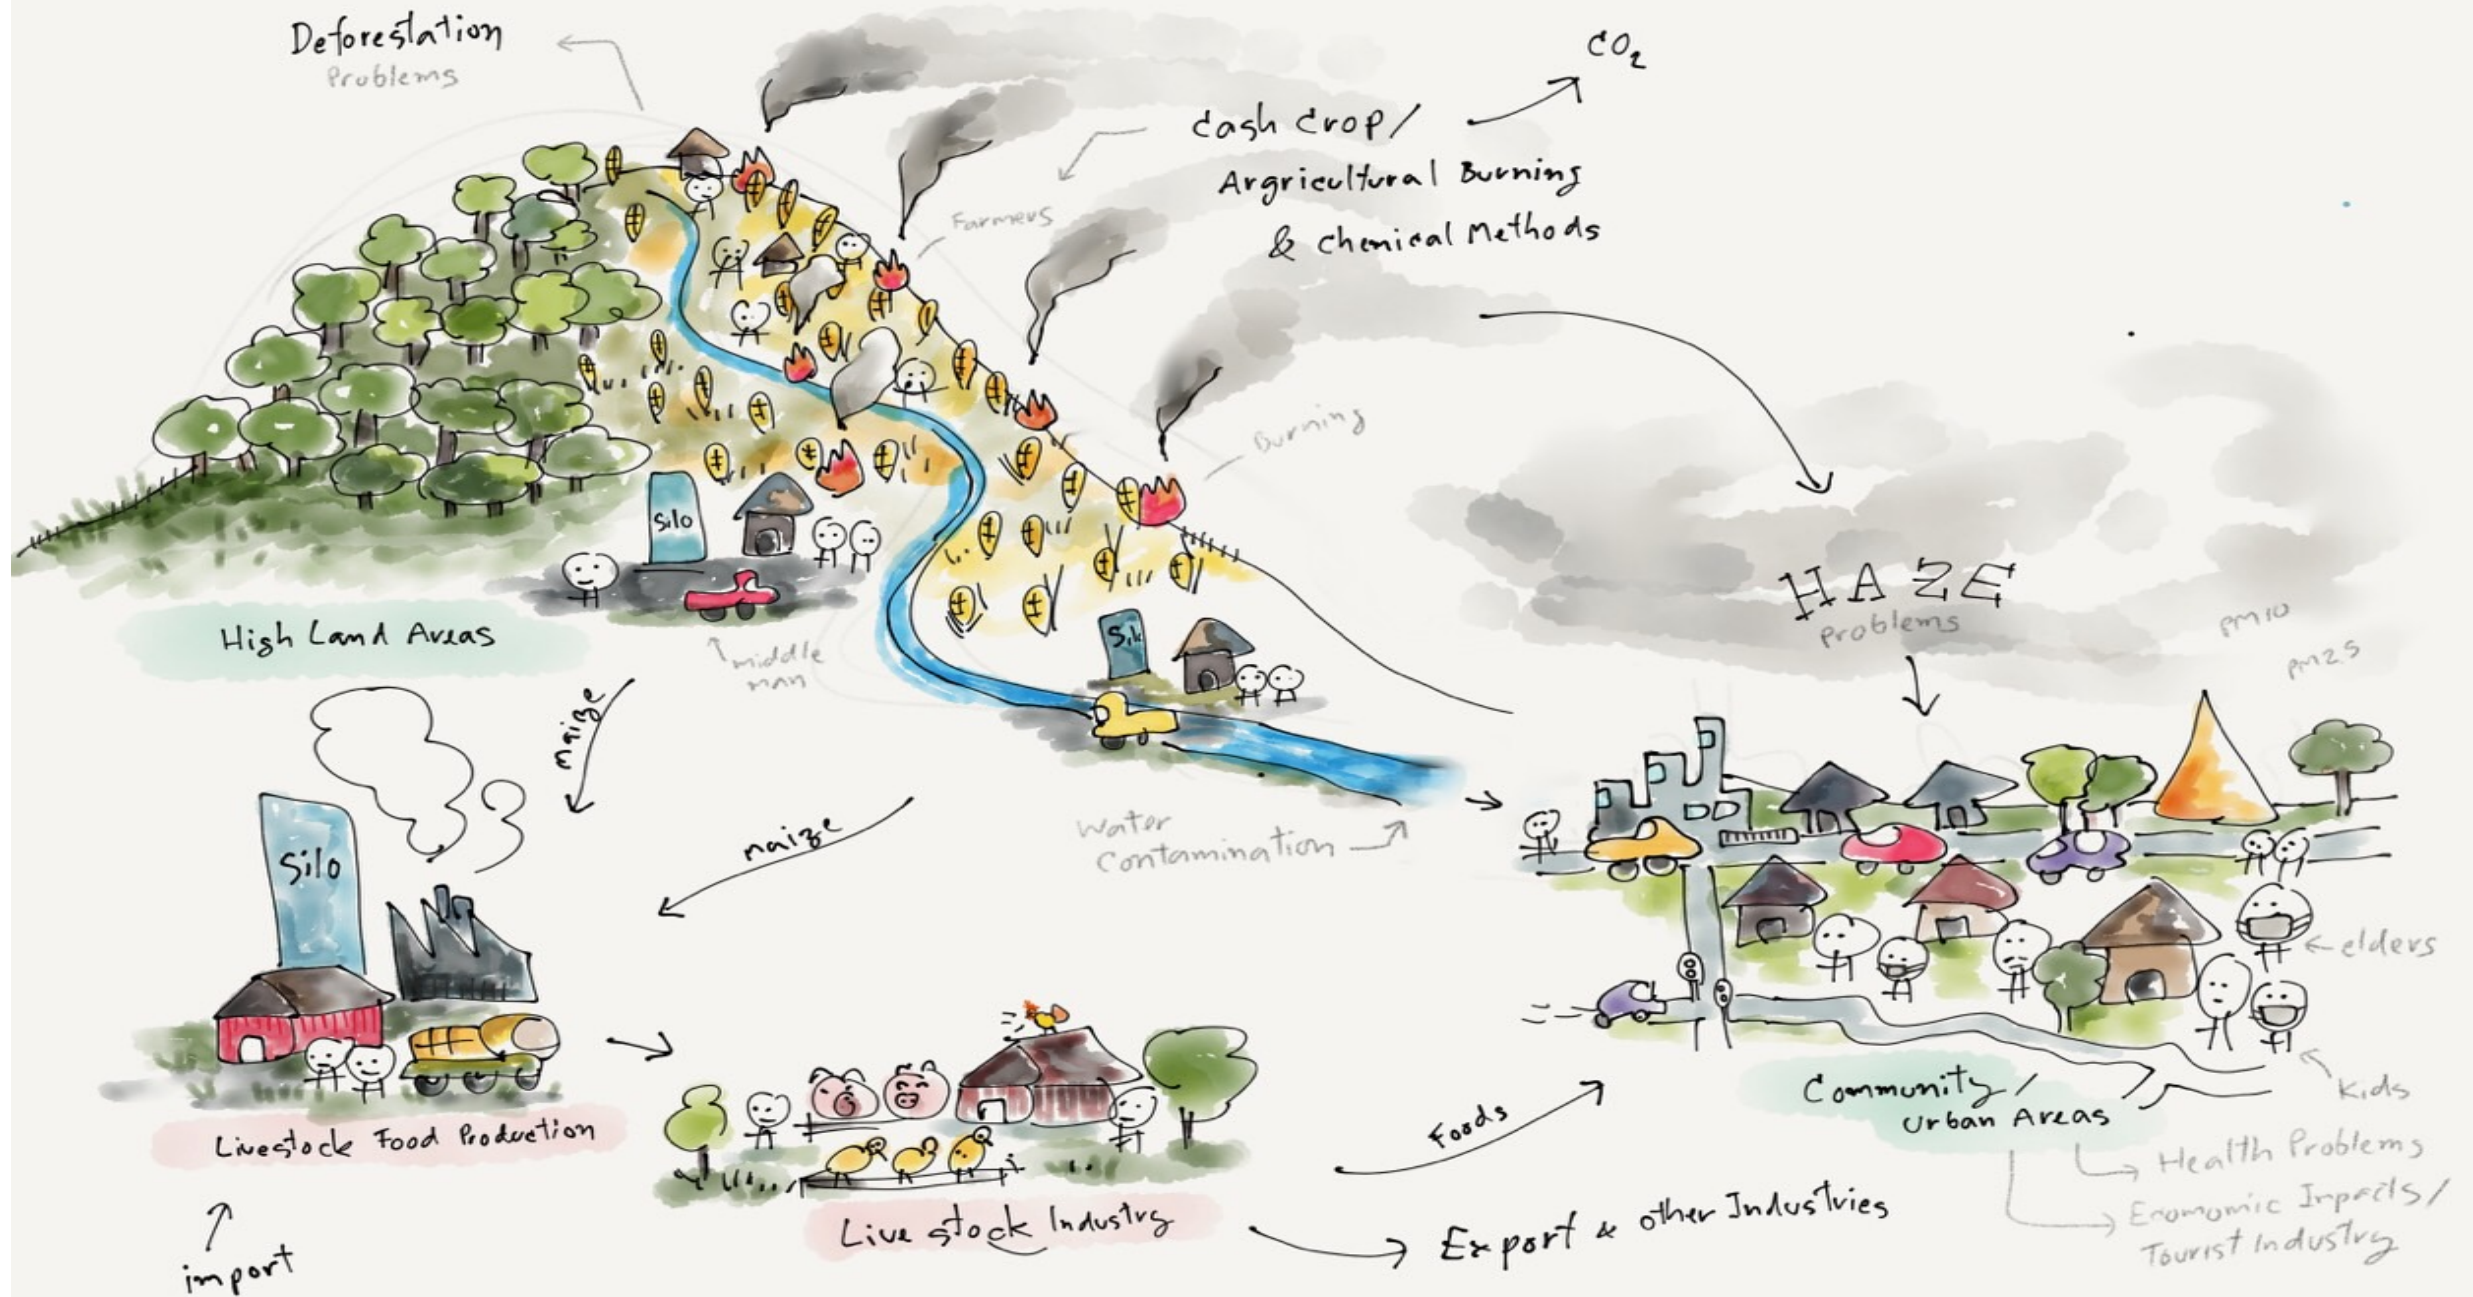 Deforestation
Problems
CO2
Cash Crop/
Argricultural Burning
& Chemical Methods
Farmers
Burning
Silo
High Land Areas
Middle
Man
Silo
HAZE
Problems
PM10
PM2.5
maize
maize
Water
Contamination
Silo
elders
Kids
Livestock Food Production
import
Live stock Industry
Foods
Export & other Industries
Community/
Urban Areas
Health Problems
Enomomic Impacts/
Tourist Industry